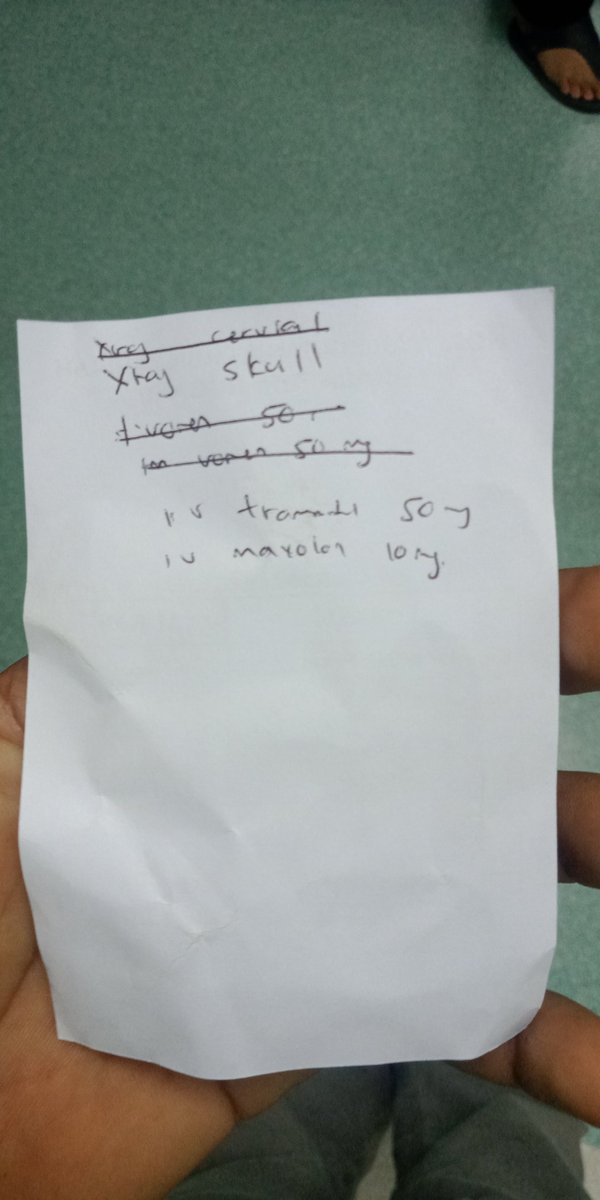 Xray cervical
Xray skull
50
im 50 mg
iv tramadol 50 mg
iv maxolon 10 mg.